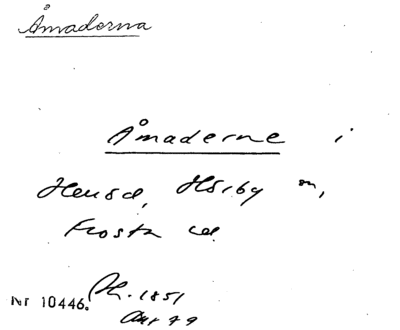 Åmaderna
Åmaderne i
Heusa, Hörby sn,
Frosta hd
Nr 10446. Ah. 1851
Akt 79